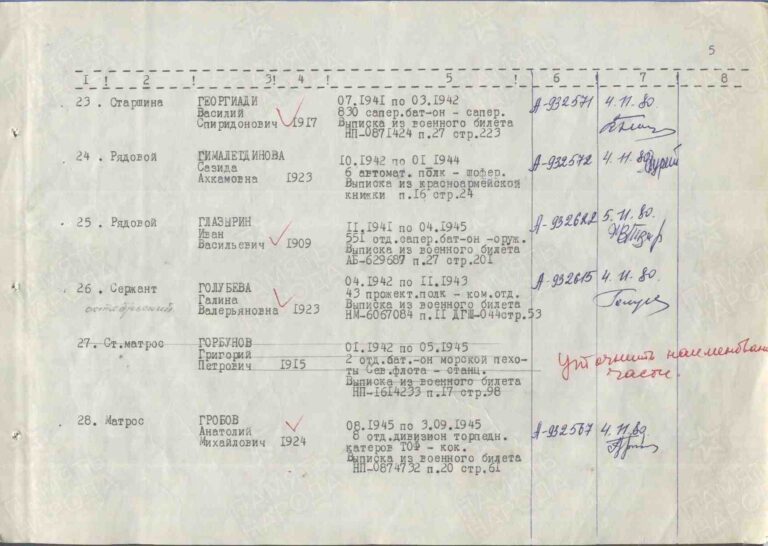 5
I ! 2 ! 3! 4 ! 5 ! 6 ! 7 ! 8
23 . Старшина ГЕОРГИАДИ 07.1941 по 03.1942 А-932571 4.11.80.
Василий 830 сапер.бат-он - сапер.
Спиридонович 1917 Выписка из военного билета
НП-0871424 п.27 стр.223
24 . Рядовой ГИМАЛЕТДИНОВА 10.1942 по 01 1944 А-932572 4.11.80
Сазида 6 автомат. полк - шофер.
Ахкамовна 1923 Выписка из красноармейской
книжки п.16 стр.24
25 . Рядовой ГЛАЗЫРИН II.1941 по 04.1945 А-932622 5.11.80.
Иван 551 отд.сапер.бат-он -оруж.
Васильевич 1909 Выписка из военного билета
АБ-629687 п.27 стр.201
26 . Сержант ГОЛУБЕВА 04.1942 по II.1943 А-932615 4.11.80.
Галина 43 прожект.полк - ком.отд.
Валерьяновна 1923 Выписка из военного билета
НМ-6067084 п.II ДГШ-044стр.53
27. Ст.матрос ГОРБУНОВ 01.1942 по 05.1945 Уточнить наименован
Григорий 2 отд.бат.-он морской пехо- части.
Петрович 1915 ты Сев.флота - станц.
Выписка из военного билета
НП-1614233 п.17 стр.98
28. Матрос ГРОБОВ 08.1945 по 3.09.1945 А-932567 4.11.80
Анатолий 8 отд.дивизион торпедн.
Михайлович 1924 катеров ТОФ - кок.
Выписка из военного билета
НП-0874732 п.20 стр.61